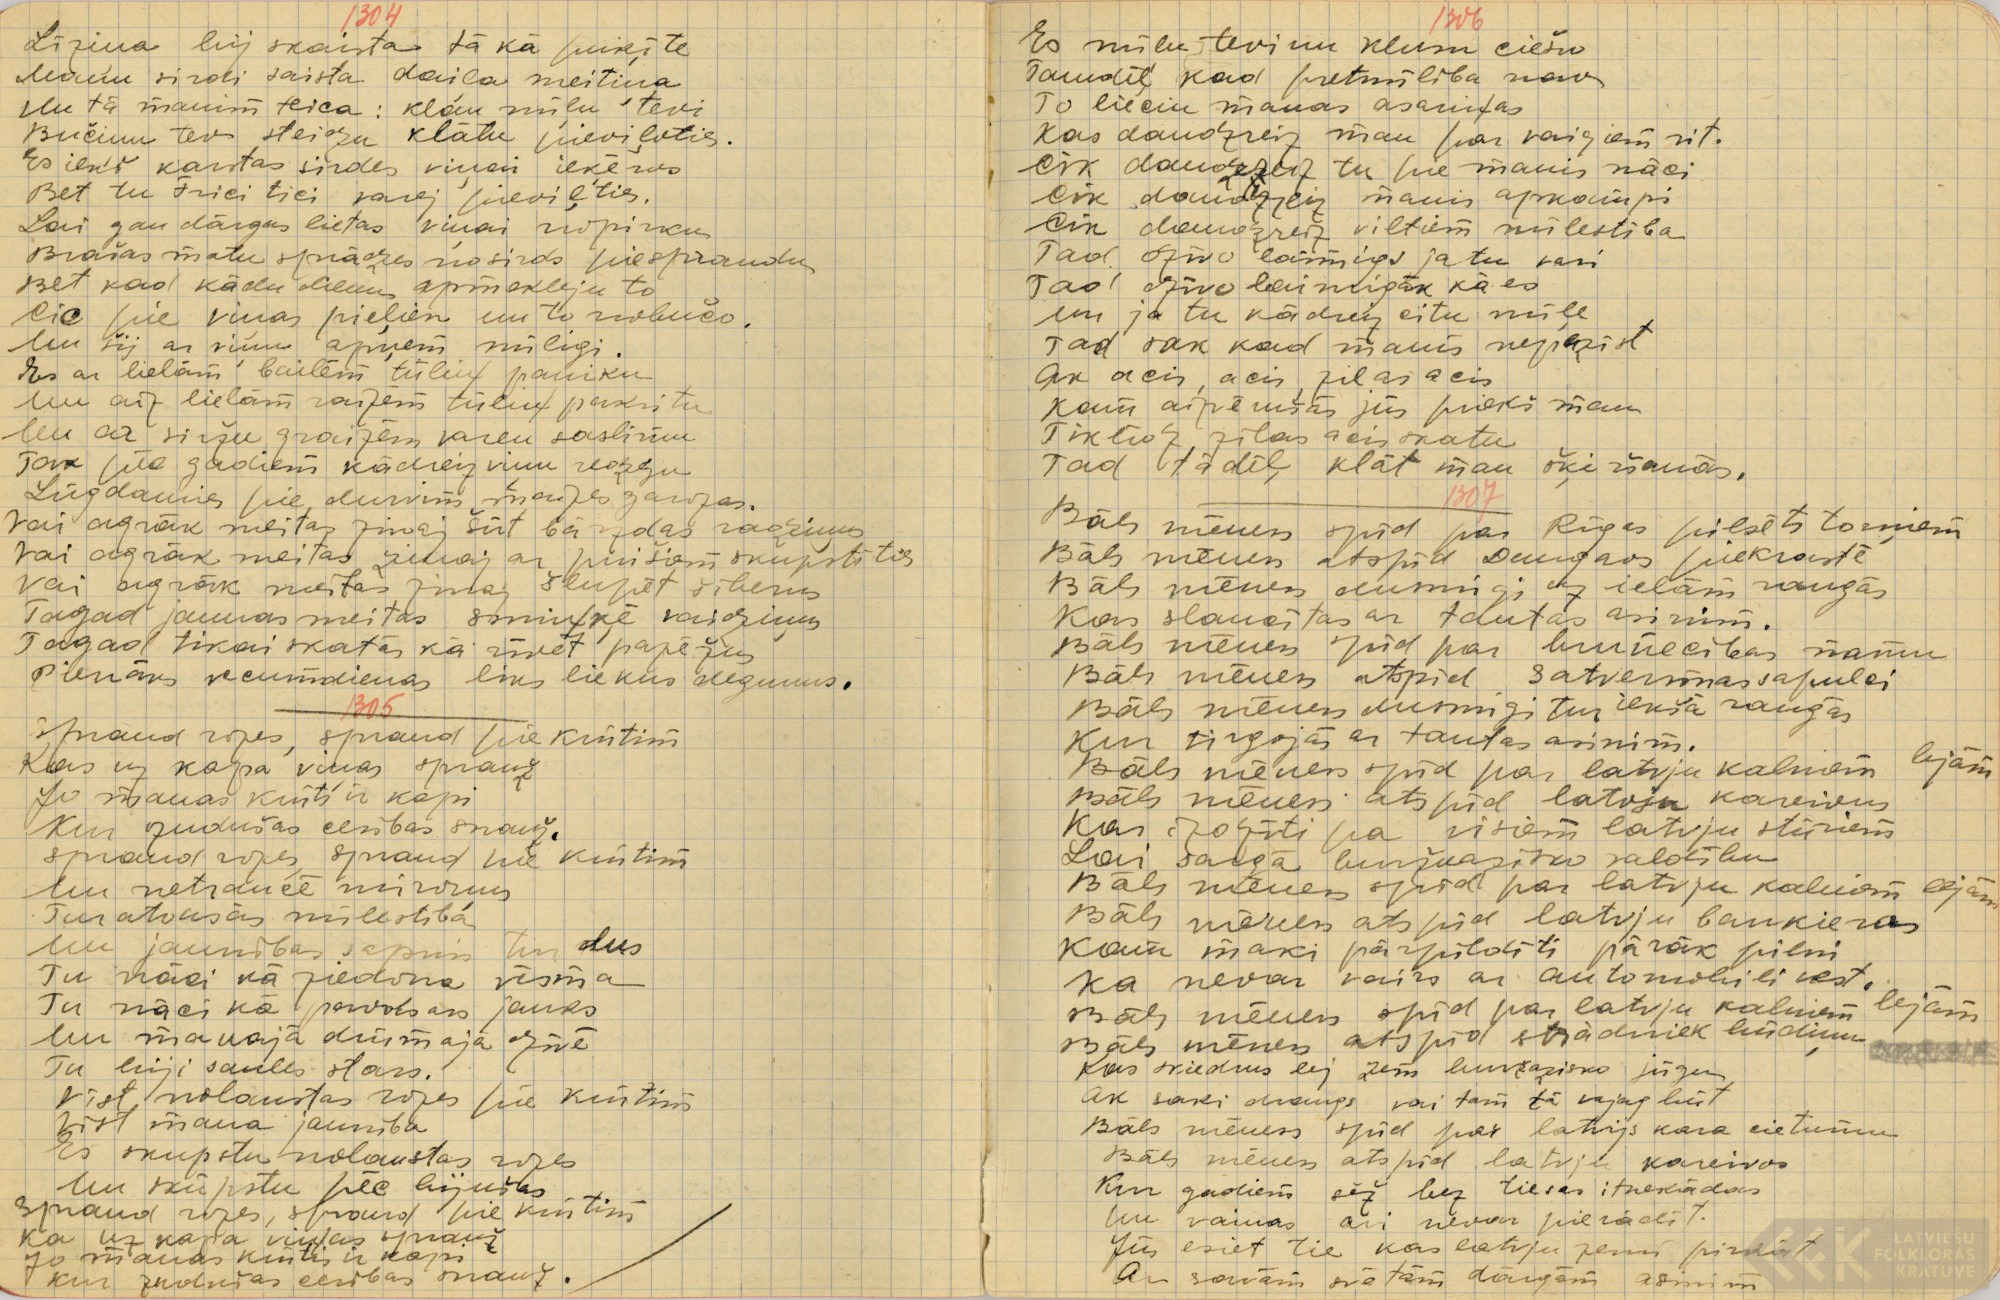 1304
Līzina bij skaista tā kā puķīte
Manu sirdi saista daiļa meitiņa
Un tā manim teica: klau mīlu tevi
Bučiņu tev steidzu klātu pievilties.
Es iekš karstas sirdes viņai ieķēros
Bet tu Frici tici varej pievilties.
Lai gan dārgas lietas viņai nopirku
Brašas matu sprādzes nosirds piespraudu
Bet kad kādu dienu apmeklēju to
Cic pie viņas pielien un to nobučo.
Un šij ar viņu apņem mīligi.
Es ar lielām bailēm tūliņ paniku
Un aiz lielām raizēm tūliņ pakritu
Un ar siržu graizēm varen saslimu
Tak pēc gadiem kādreiz viņu redzēju
Lūgdamies pie durvim maizes garozas.
Vai agrāk meitas zinaj šūt bārzdas radziņus
Vai agrāk meitas zinaj ar puišiem skūpstīties
Vai agrāk meitas zinaj šlupēt sīberus
Tagad jaunas meitas smiņķē vaidziņus
Tagad tikai skatās kā rīvēt papēžus
Pienāks vecumdienas liks liekus degunus.
1305
Spraud rozes, spraud pie krūtim
Kas uz kapa viņas sprauž
Jo manas krūti ir kapi
Kur zudušas cerības snauž.
Spraud rozes, spraud pie krūtim
Un netraucē mironus
Tur atdusās mīlestība
Un jaunības sapnis tur dus
Tu nāci kā ziedoņa vēsma
Tu nāci kā pavasars jauks
Un manajā drūmajā dzīvē
Tu biji saules stars.
Vīst nolauztas rozes pie krūtim
Vīst mana jaunība
Es skūpstu nolauztas rozes
Un skūpstu pēc bijušas
Spraud rozes, spraud pie krūtim
Ka uz kapa viņas sprauž
Jo manas krūtis ir kapi
Kur zudušas cerības snauž.
1306
Es mīlu tevi un klusu ciešu
Tamdēļ kad pretmīlība nav
To liecin manas asariņas
Kas daudzreiz man par vaigiem rit.
Cik daudzreiz tu pie manis nāci
Cik daudzreiz manis apkampi
Cik daudzreiz viltiem mīlestība
Tad dzīvo laimīgs ja tu vari
Tad dzīvo laimīgāk kā es
Un ja tu kādreiz citu mīlē
Tad sak kad manis nepazīst
Ak acis, acis, zilas acis
Kam aizvērušās jūs priekš man
Tiklīdz zilas acis skatu
Tad tādēļ klāt man šķiršanās.
1307
Bāls mēness spīd par Rīgas pilsēts torņiem
Bāls mēness atspīd Daugavs piekrastē
Bāls mēness dusmīgi uz ielām raugās
Kas slaucītas ar tautas asinim.
Bāls mēness spīd par bruņecības namu
Bāls mēness atspīd Satversmas sapulci
Bāls mēness dusmīgi tur iekšā raugās
Kur tirgojās ar tautas asinim.
Bāls mēness spīd par latvju kalniem lejām
Bāls mēness atspīd latvju kareivus
Kas izdzīti pa visiem latvju stūriem
Lai sargā buržuazisko valdību
Bāls mēness spīd par latvju kalniem lejām
Bāls mēness atspīd latvju bankieras
Kam maki pārpildīti pārāk pilni
Ka nevar vairs ar automobili vest.
Bāls mēness spīd par latvju kalniem lejām
Bāls mēness atspīd strādniek būdiņu
Kas sviedrus lej zem buržazisko jūgu
Ak saki draugs vai tam tā vajag būt
Bāls mēness spīd par latvijs kara cietumu
Bāls mēness atspīd latvju kareivos
Kur gadiem sēž bez tiesas itnekādas
Un vainas arī nevar pierādīt.
Jūs esiet tie kas latvju zemi pirkāt
Ar savām svētām dārgām asinim
LATVIEŠU
FOLKLORAS
KRĀTUVE